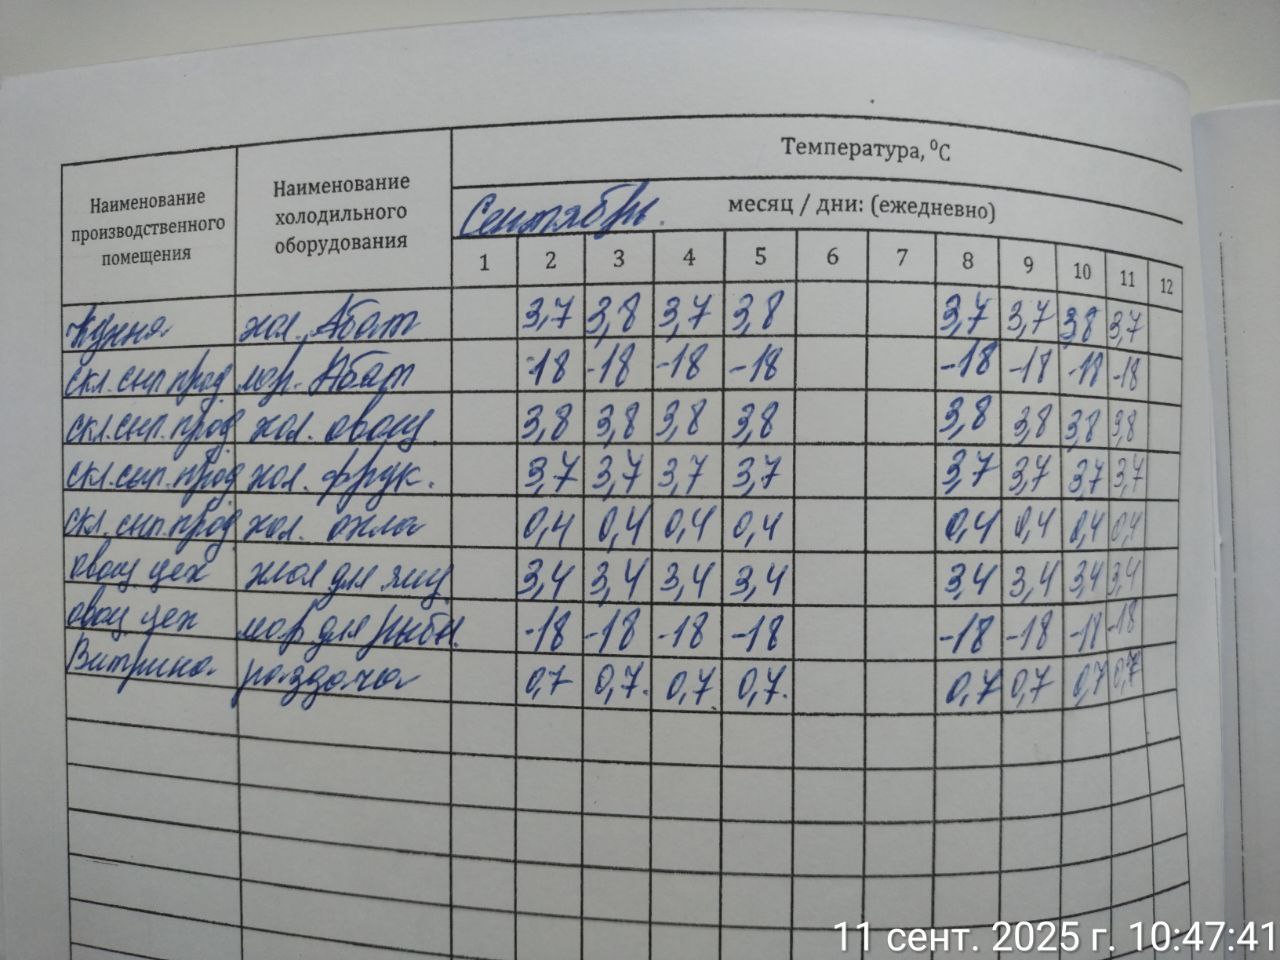 Температура, ⁰С
Наименование производственного помещения
Наименование холодильного оборудования
Сентябрь. месяц / дни: (ежедневно)
1 2 3 4 5 6 7 8 9 10 11 12
Кухня хол. Абат 3,7 3,8 3,7 3,8 3,7 3,7 3,8 3,7
скл. сып. прод. мор. Абат -18 -18 -18 -18 -18 -18 -18 -18
скл. сып. прод хол. овощ. 3,8 3,8 3,8 3,8 3,8 3,8 3,8 3,8
скл. сып. прод хол. фрук. 3,7 3,7 3,7 3,7 3,7 3,7 3,7 3,7
скл. сып. прод хол. 0,4 0,4 0,4 0,4 0,4 0,4 0,4 0,4
овощ цех для яиц 3,4 3,4 3,4 3,4 3,4 3,4 3,4 3,4
овощ цех мор для рыбы. -18 -18 -18 -18 -18 -18 -18 -18
Витрина раздача 0,7 0,7. 0,7 0,7. 0,7 0,7 0,7 0,7
11 сент. 2025 г. 10:47:41